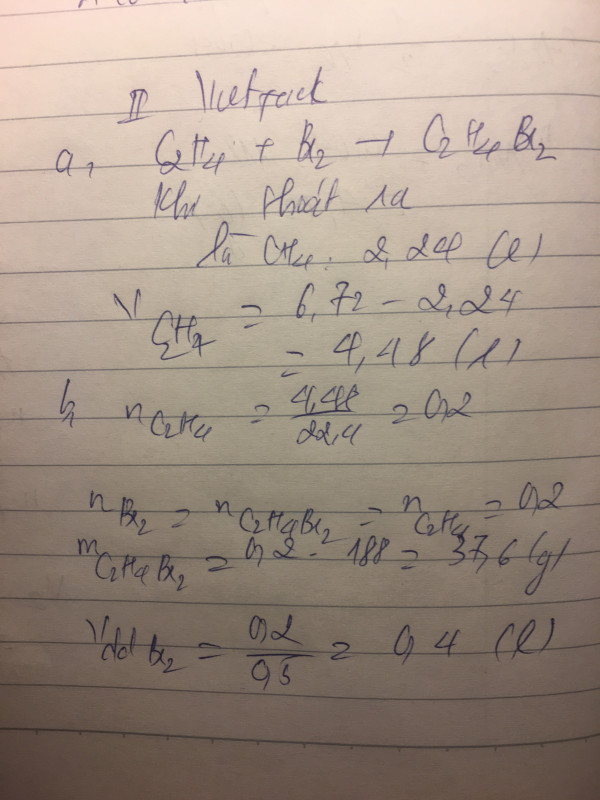 II Vietjack
a, C2H4 + Br2 → C2H4Br2
Khí thoát ra
là CH4: 2,24 (l)
V C2H4 = 6,72 - 2,24
= 4,48 (l)
b, n C2H4 = 4,48/22,4 = 0,2
n Br2 = n C2H4Br2 = n C2H4 = 0,2
m C2H4Br2 = 0,2 . 188 = 37,6 (g)
V dd Br2 = 0,2/0,5 = 0,4 (l)